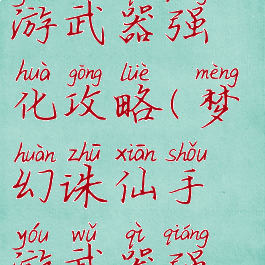 游武器强
huà gōng lüè mèng
化攻略(梦
huàn zhū xiān shǒu
幻诛仙手
yóu wǔ qì qiáng
游武器强